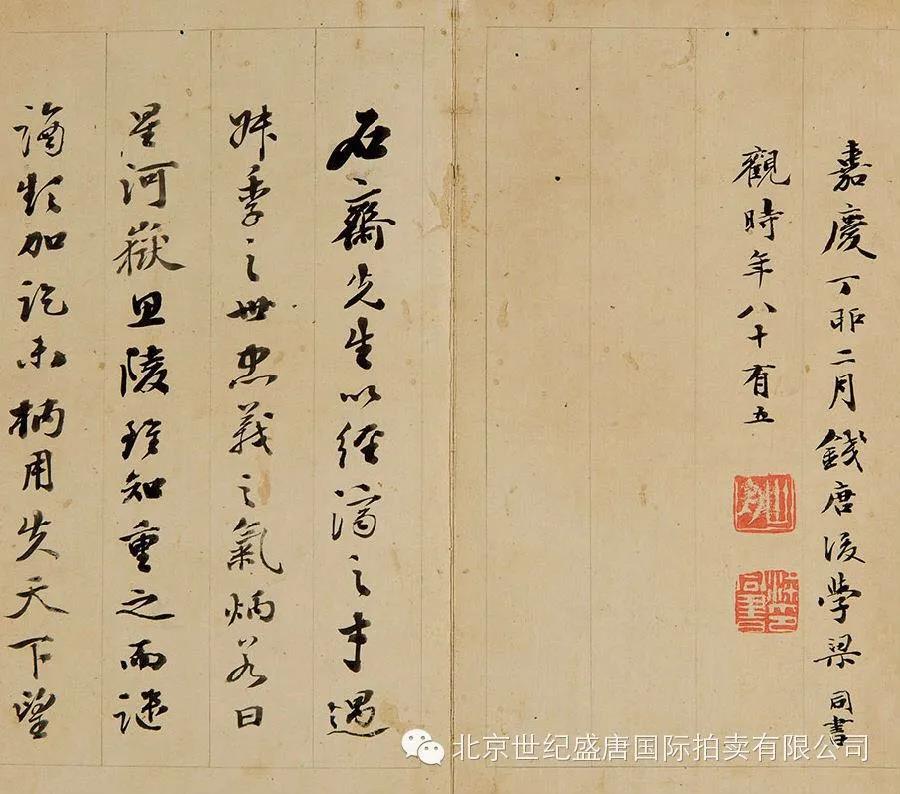 嘉慶丁卯二月錢唐後學梁同書
觀時年八十有五
山舟
梁同書印
石齋先生以經濟之才遇
叔季之世忠義之氣炳若日
星河嶽思陵雖知重之而譴
謫頻加訖未柄用失天下望
北京世纪盛唐国际拍卖有限公司